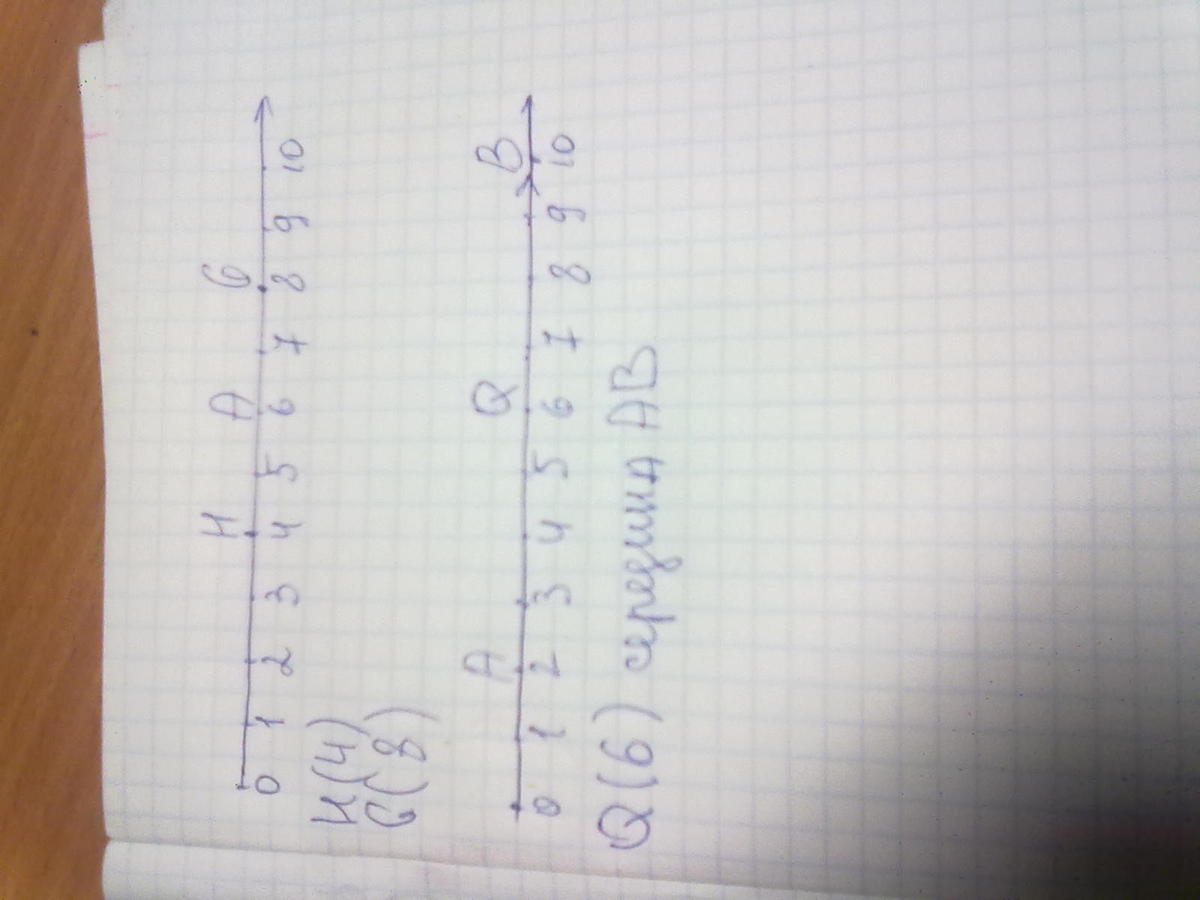 H A G
0 1 2 3 4 5 6 7 8 9 10
H(4)
G(8)
A Q B
0 1 2 3 4 5 6 7 8 9 10
Q(6) середина AB